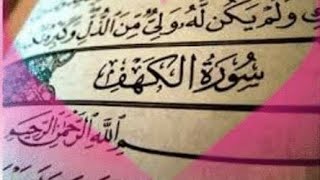 وَلَمْ يَكُن لَّهُ وَلِيٌّ مِّنَ الذُّلِّ وَكَبِّرْهُ
سُورَةُ الْكَهْفِ
بِسْمِ اللَّهِ الرَّحْمَٰنِ الرَّحِيمِ